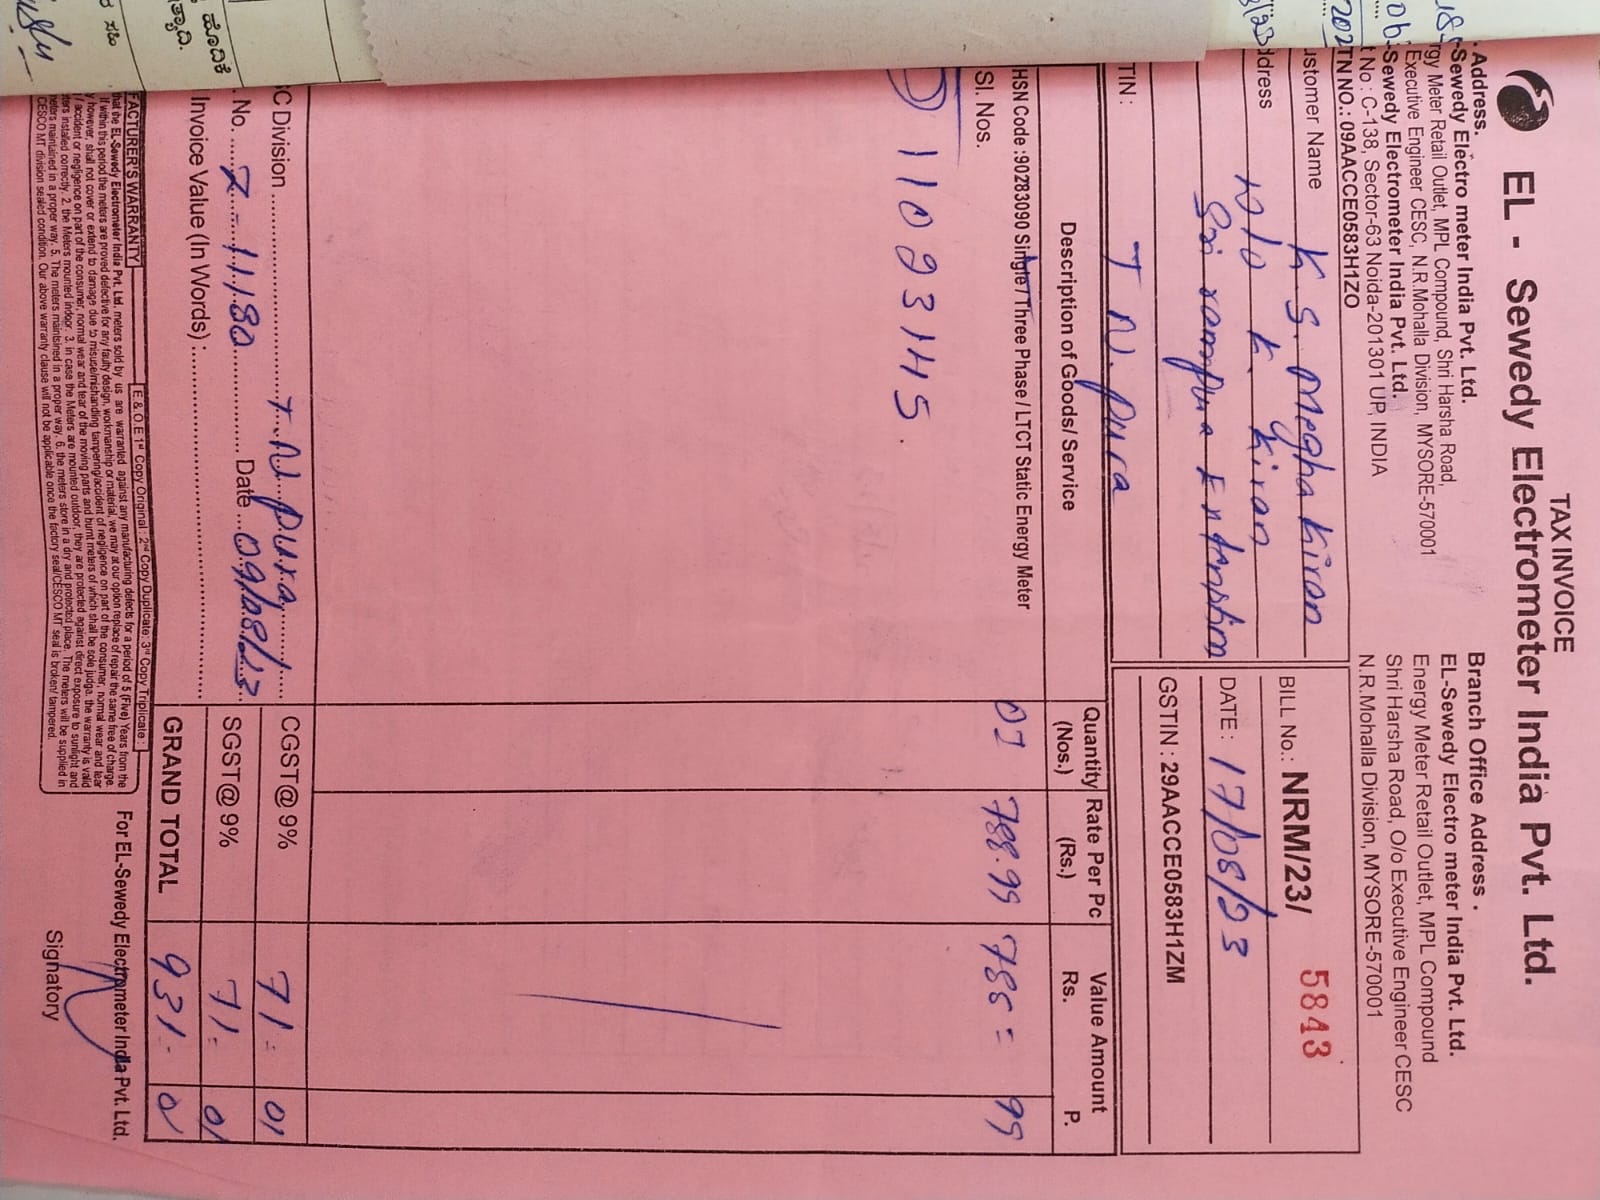 TAX INVOICE
EL - Sewedy Electrometer India Pvt. Ltd.
Address.
-Sewedy Electro meter India Pvt. Ltd.
rgy Meter Retail Outlet, MPL Compound, Shri Harsha Road,
Executive Engineer CESC, N.R.Mohalla Division, MYSORE-570001
-Sewedy Electrometer India Pvt. Ltd.
t No : C-138, Sector-63 Noida-2013301 UP, INDIA
TN NO.: 09AACCE0583H1ZO
Branch Office Address .
EL-Sewedy Electro meter India Pvt. Ltd.
Energy Meter Retail Outlet, MPL Compound
Shri Harsha Road, O/o Executive Engineer CESC
N.R.Mohalla Division, MYSORE-570001
ustomer Name K. S. Megha Kiran
ddress W/o K. Kiran
Sri rampura Extenstion
T N. Pura
TIN :
BILL No.: NRM/23/ 5843
DATE : 17/08/23
GSTIN : 29AACCE0583H1ZM
Description of Goods/ Service Quantity (Nos.) Rate Per Pc (Rs.) Value Amount Rs. P.
HSN Code :90283090 Single / Three Phase / LTCT Static Energy Meter 01 788.99 788 = 99
Sl. Nos.
11093145.
C Division ........ T. N. Pura ........
. No. .... 7-11180 ........ Date ... 09/08/23.
Invoice Value (In Words) : ........
CGST@ 9% 71 - 01
SGST@ 9% 71 - 01
GRAND TOTAL 931 - 0
E & O.E 1st Copy Original : 2nd Copy Duplicate: 3rd Copy Triplicate :
FACTURER'S WARRANTY
that the EL-Sewedy Electrometer India Pvt. Ltd. meters sold by us are warranted against any manufacturing defects for a period of 5 (Five) Years from the
If within this period the meters are proved defective for any faulty design, workmanship or material, we may at our option replace of repair the same free of charge.
y however, shall not cover or extend to damage due to misuse/mishandling tampering/accident of negligence on part of the consumer, normal wear and tear
/ accident or negligence on part of the consumer, normal wear and tear of the moving parts and burnt meters of which shall be sole judge. the warranty is valid
ters installed correctly. 2. the Meters mounted indoor. 3. in case the Meters are mounted outdoor, they are protected against direct exposure to sunlight and
meters maintained in a proper way. 5. The meters maintained in a proper way. 6. the meters store in a dry and protected place. The meters will be supplied in
CESCO MT division sealed condition. Our above warranty clause will not be applicable once the factory seal/CESCO MT seal is broken/ tampered.
For EL-Sewedy Electrometer India Pvt. Ltd.
Signatory